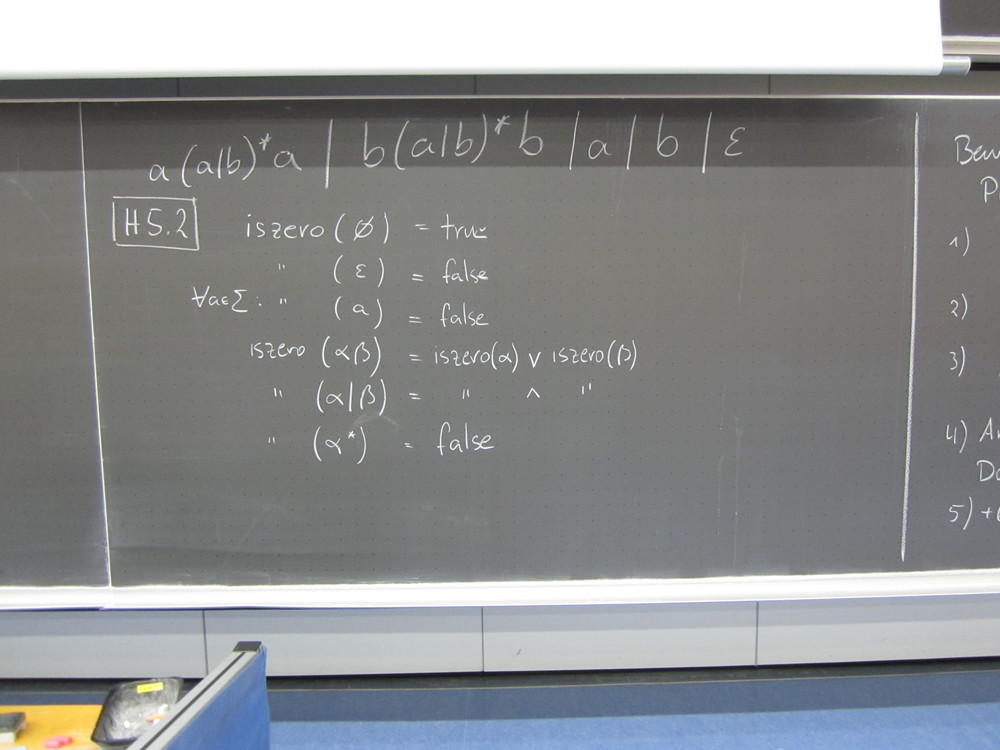 a(a|b)*a | b(a|b)*b | a | b | ε
H5.2 iszero(∅) = true
" (ε) = false
∀a∈Σ: " (a) = false
iszero(αβ) = iszero(α) ∨ iszero(β)
" (α|β) = " ∧ "
" (α*) = false
1)
2)
3)
4)
5)